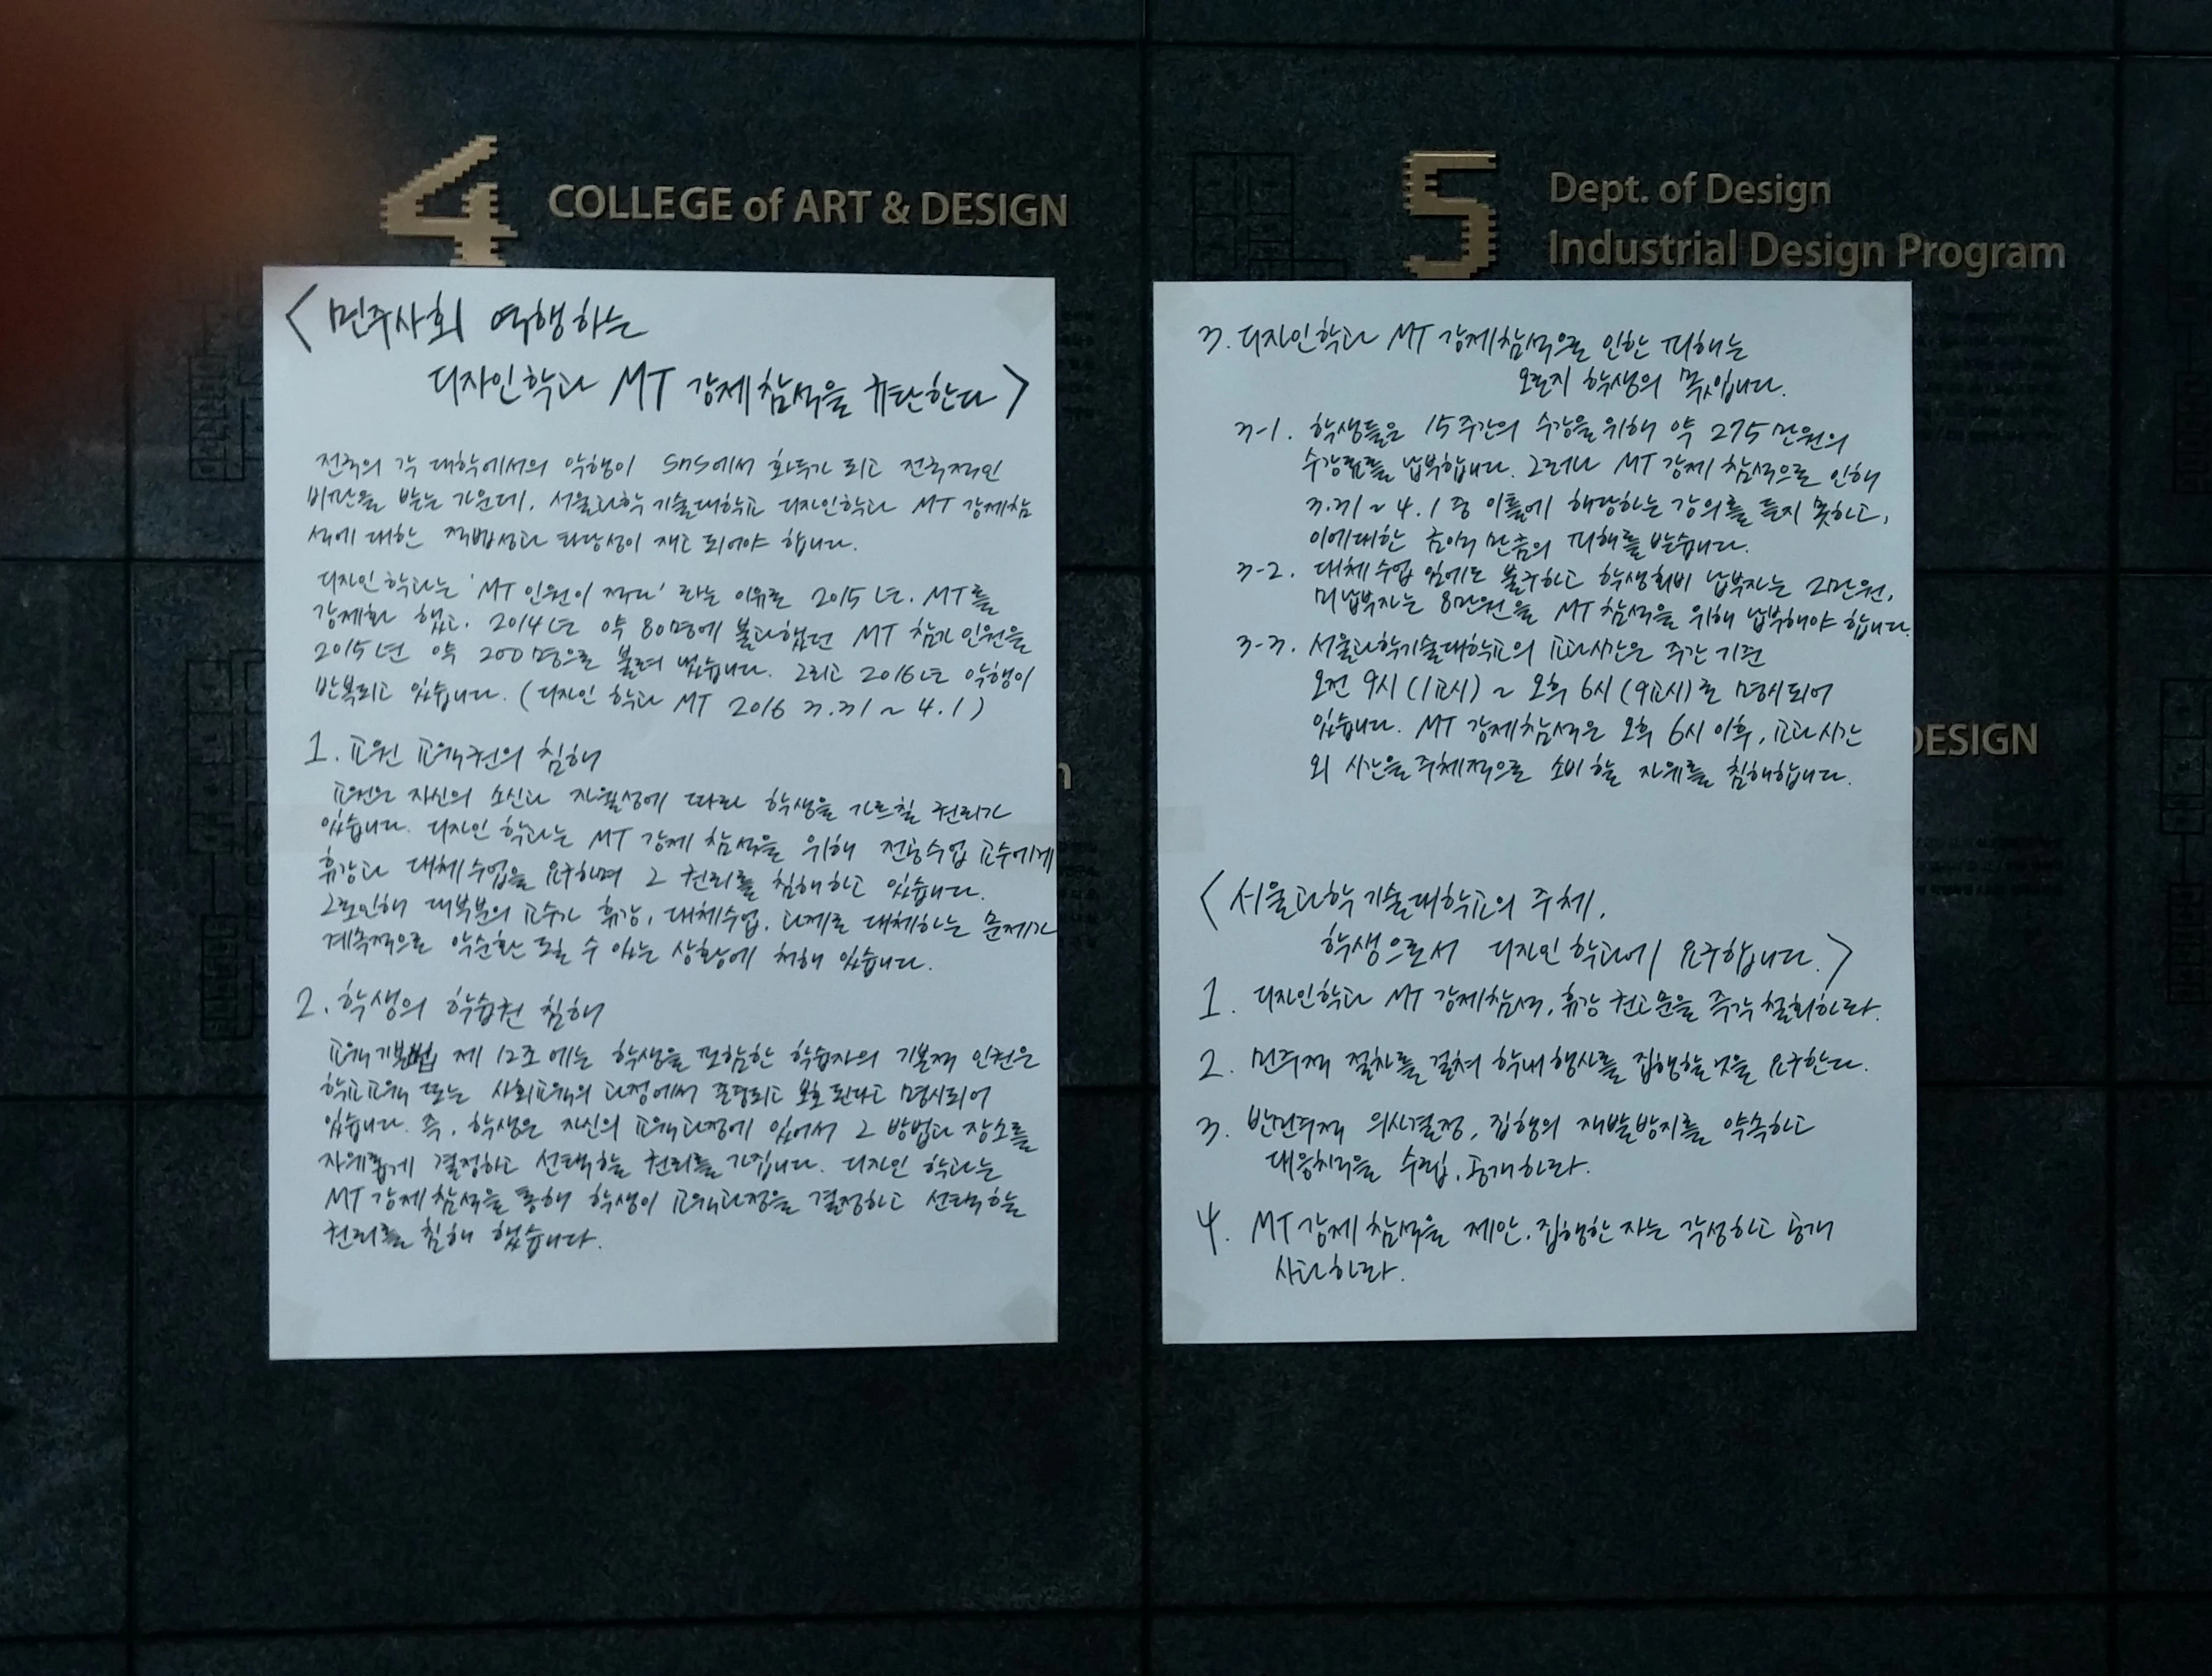 4 COLLEGE of ART & DESIGN
<민주사회 역행하는
디자인학과 MT 강제참석을 규탄한다>
전국의 각 대학에서의 악행이 SNS에서 화두가 되고 전국적인
비판을 받는 가운데, 서울과학기술대학교 디자인학과 MT 강제참
석에 대한 적법성과 타당성이 재고 되어야 합니다.
디자인 학과는 'MT 인원이 적다' 라는 이유로 2015년. MT를
강제화 했고, 2014년 약 80명에 불과했던 MT 참가 인원을
2015년 약 200명으로 불려 냈습니다. 그리고 2016년 악행이
반복되고 있습니다. (디자인 학과 MT 2016 3.31 ~ 4.1)
1. 교원 교육권의 침해
교원은 자신의 소신과 자율성에 따라 학생을 가르칠 권리가
있습니다. 디자인 학과는 MT 강제 참석을 위해 전공수업 교수에게
휴강과 대체수업을 요구하며 그 권리를 침해하고 있습니다.
그로인해 대부분의 교수가 휴강, 대체수업, 과제로 대체하는 문제가
계속적으로 악순환 될 수 있는 상황에 처해 있습니다.
2. 학생의 학습권 침해
교육기본법 제 12조 에는 학생을 포함한 학습자의 기본적 인권은
학교교육 또는 사회교육의 과정에서 존중되고 보호 된다고 명시되어
있습니다. 즉, 학생은 자신의 교육과정에 있어서 그 방법과 장소를
자유롭게 결정하고 선택할 권리를 가집니다. 디자인 학과는
MT 강제 참석을 통해 학생이 교육과정을 결정하고 선택할
권리를 침해 했습니다.
5 Dept. of Design
Industrial Design Program
3. 디자인학과 MT 강제참석으로 인한 피해는
오로지 학생의 몫입니다.
3-1. 학생들은 15주간의 수강을 위해 약 275만원의
수강료를 납부합니다. 그러나 MT 강제 참석으로 인해
3.31 ~ 4.1 중 이틀에 해당하는 강의를 듣지 못하고,
이에대한 금액 만큼의 피해를 받습니다.
3-2. 대체 수업 임에도 불구하고 학생회비 납부자는 2만원,
미납부자는 8만원을 MT 참석을 위해 납부해야 합니다.
3-3. 서울과학기술대학교의 교과시간은 주간 기준
오전 9시(1교시) ~ 오후 6시(9교시)로 명시되어
있습니다. MT 강제참석은 오후 6시 이후, 교과시간
외 시간을 주체적으로 소비할 자유를 침해합니다.
<서울과학기술대학교의 주체,
학생으로서 디자인 학과에 요구합니다.>
1. 디자인학과 MT 강제참석, 휴강 권고문을 즉각 철회하라.
2. 민주적 절차를 걸쳐 학내 행사를 집행할 것을 요구한다.
3. 반민주적 의사결정, 집행의 재발방지를 약속하고
대응책을 수립, 공개하라.
4. MT 강제 참석을 제안, 집행한 자는 각성하고 공개
사과하라.
DESIGN